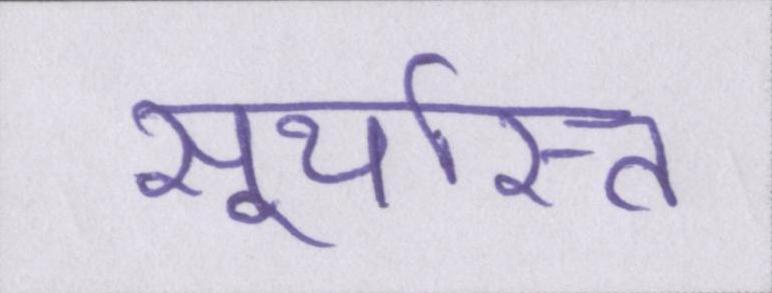 सूर्यास्त